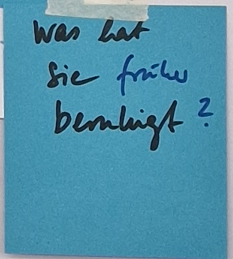 Was hat
sie früher
beruhigt?